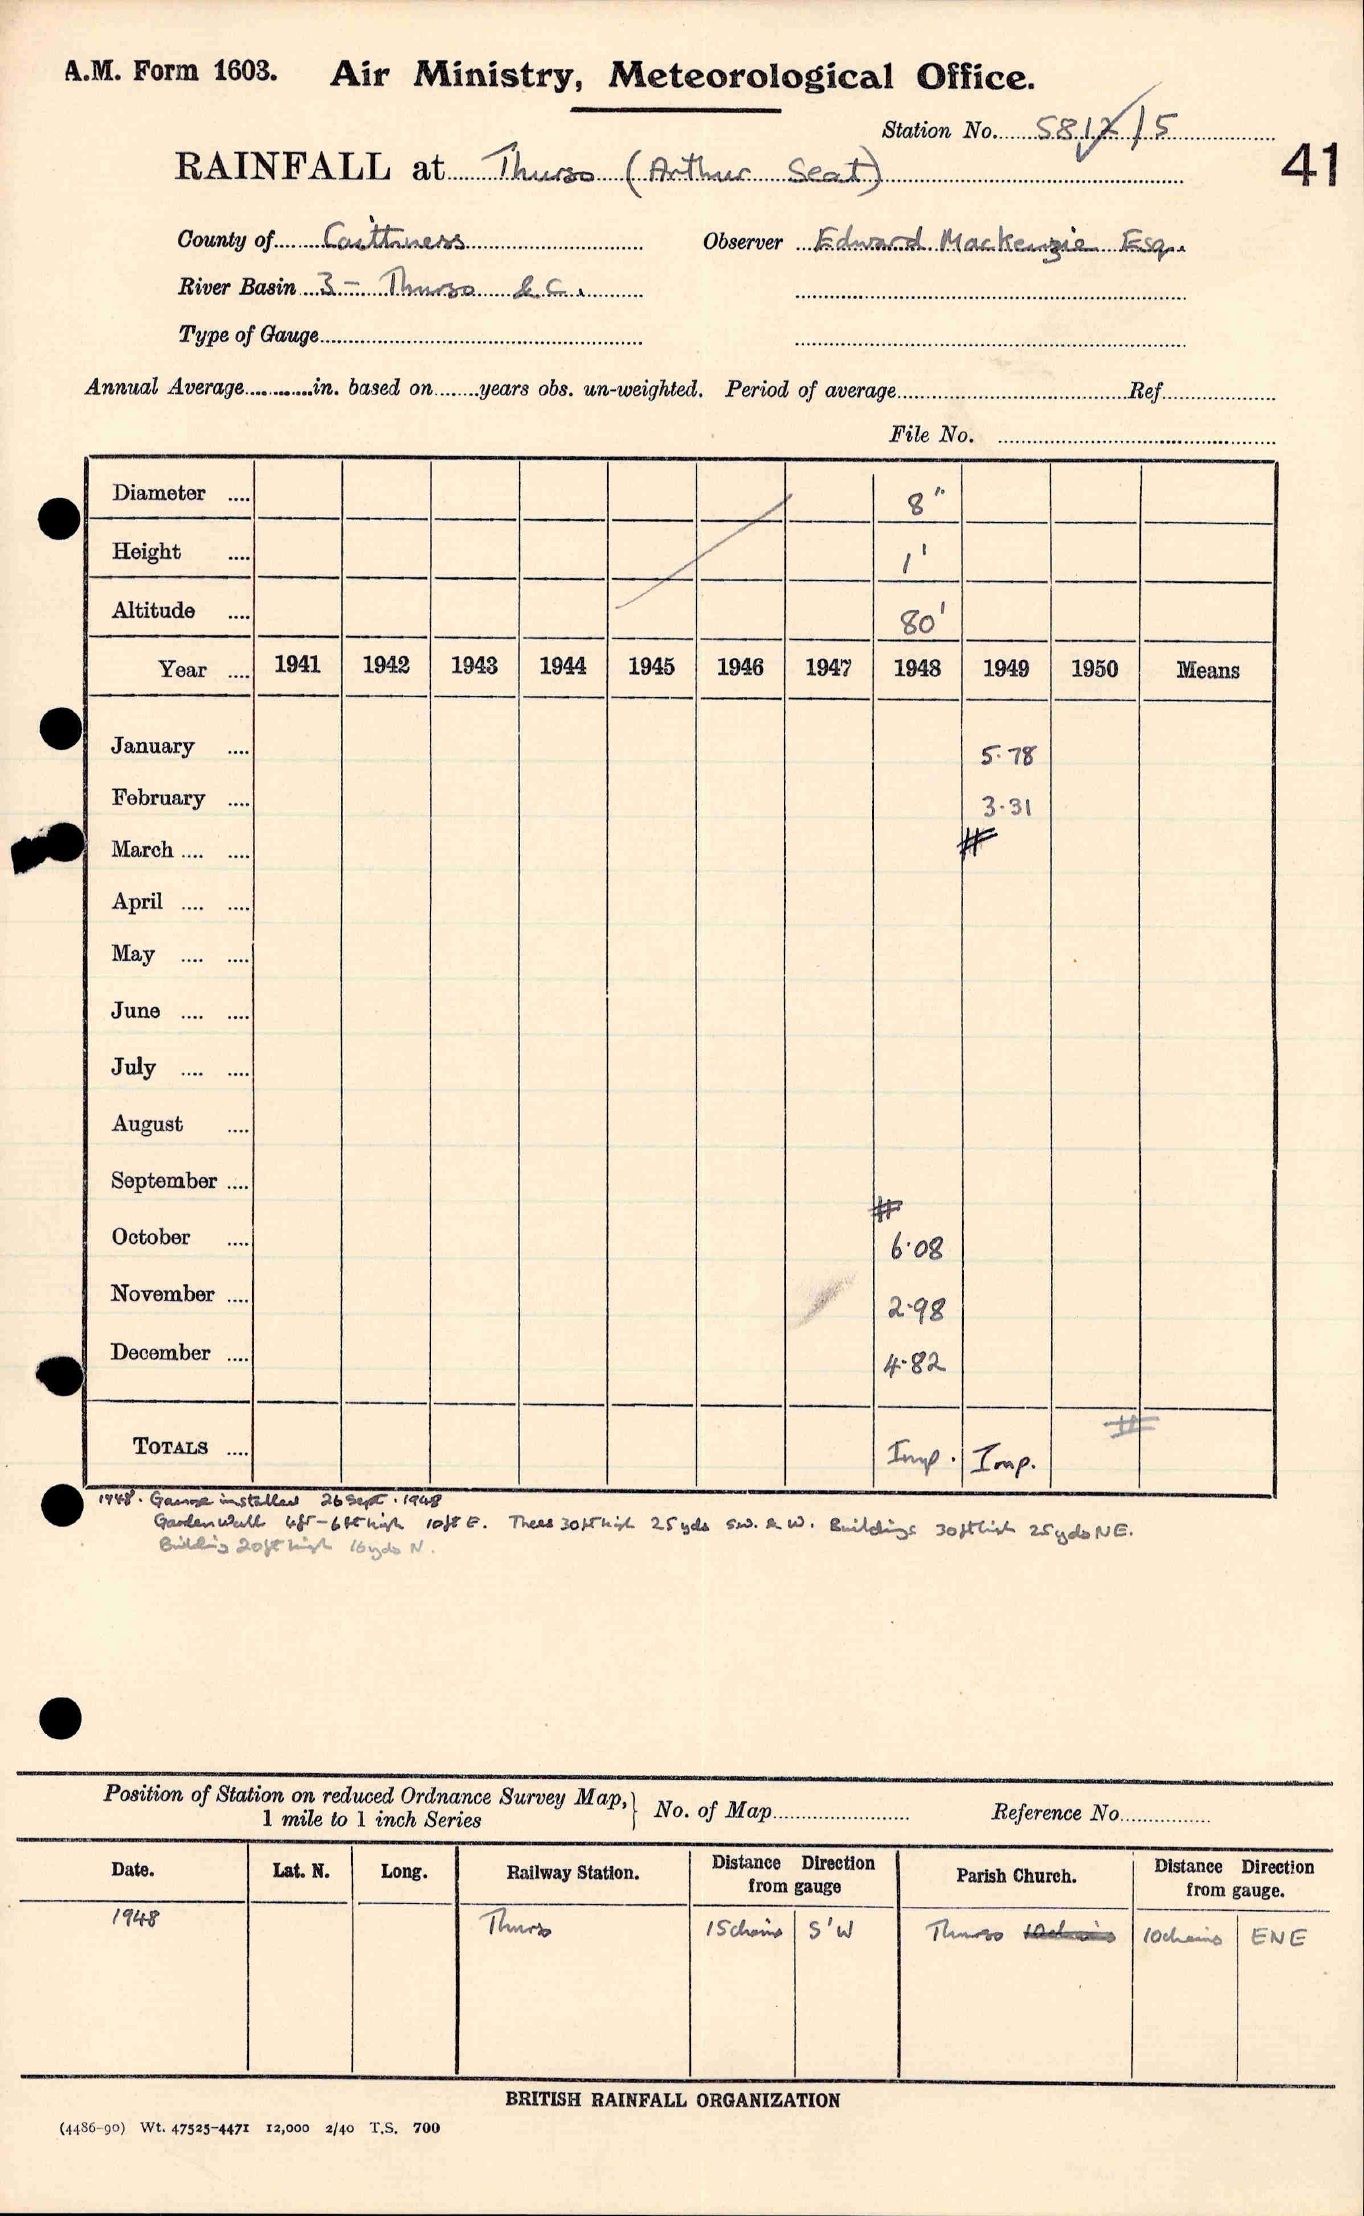 A.M. Form 1603. Air Ministry, Meteorological Office.
Station No. 5812/5
41
RAINFALL at Thurso (Arthur Seat)
County of Caithness Observer Edward Mackenzie Esq.
River Basin 3 – Thurso &c.
Type of Gauge
Annual Average in. based on years obs. un-weighted. Period of average Ref
File No.
Diameter 8"
Height 1'
Altitude 80'
Year 1941 1942 1943 1944 1945 1946 1947 1948 1949 1950 Means
January 5.78
February 3.31
March #
April
May
June
July
August
September
#
October 6.08
November 2.98
December 4.82
#
TOTALS Imp. Imp.
1948. Gauge installed 26 Sept. 1948
Garden Wall 4ft – 6ft high 10ft E. Trees 30ft high 25 yds SW. & W. Buildings 30ft high 25 yds NE.
Building 20ft high 16 yds N.
Position of Station on reduced Ordnance Survey Map, } No. of Map Reference No.
1 mile to 1 inch Series
Date. Lat. N. Long. Railway Station. Distance Direction from gauge Parish Church. Distance Direction from gauge.
1948 Thurso 15 chains S'W Thurso 10 chains 10 chains ENE
BRITISH RAINFALL ORGANIZATION
(4486-90) Wt. 47525-4471 12,000 2/40 T.S. 700